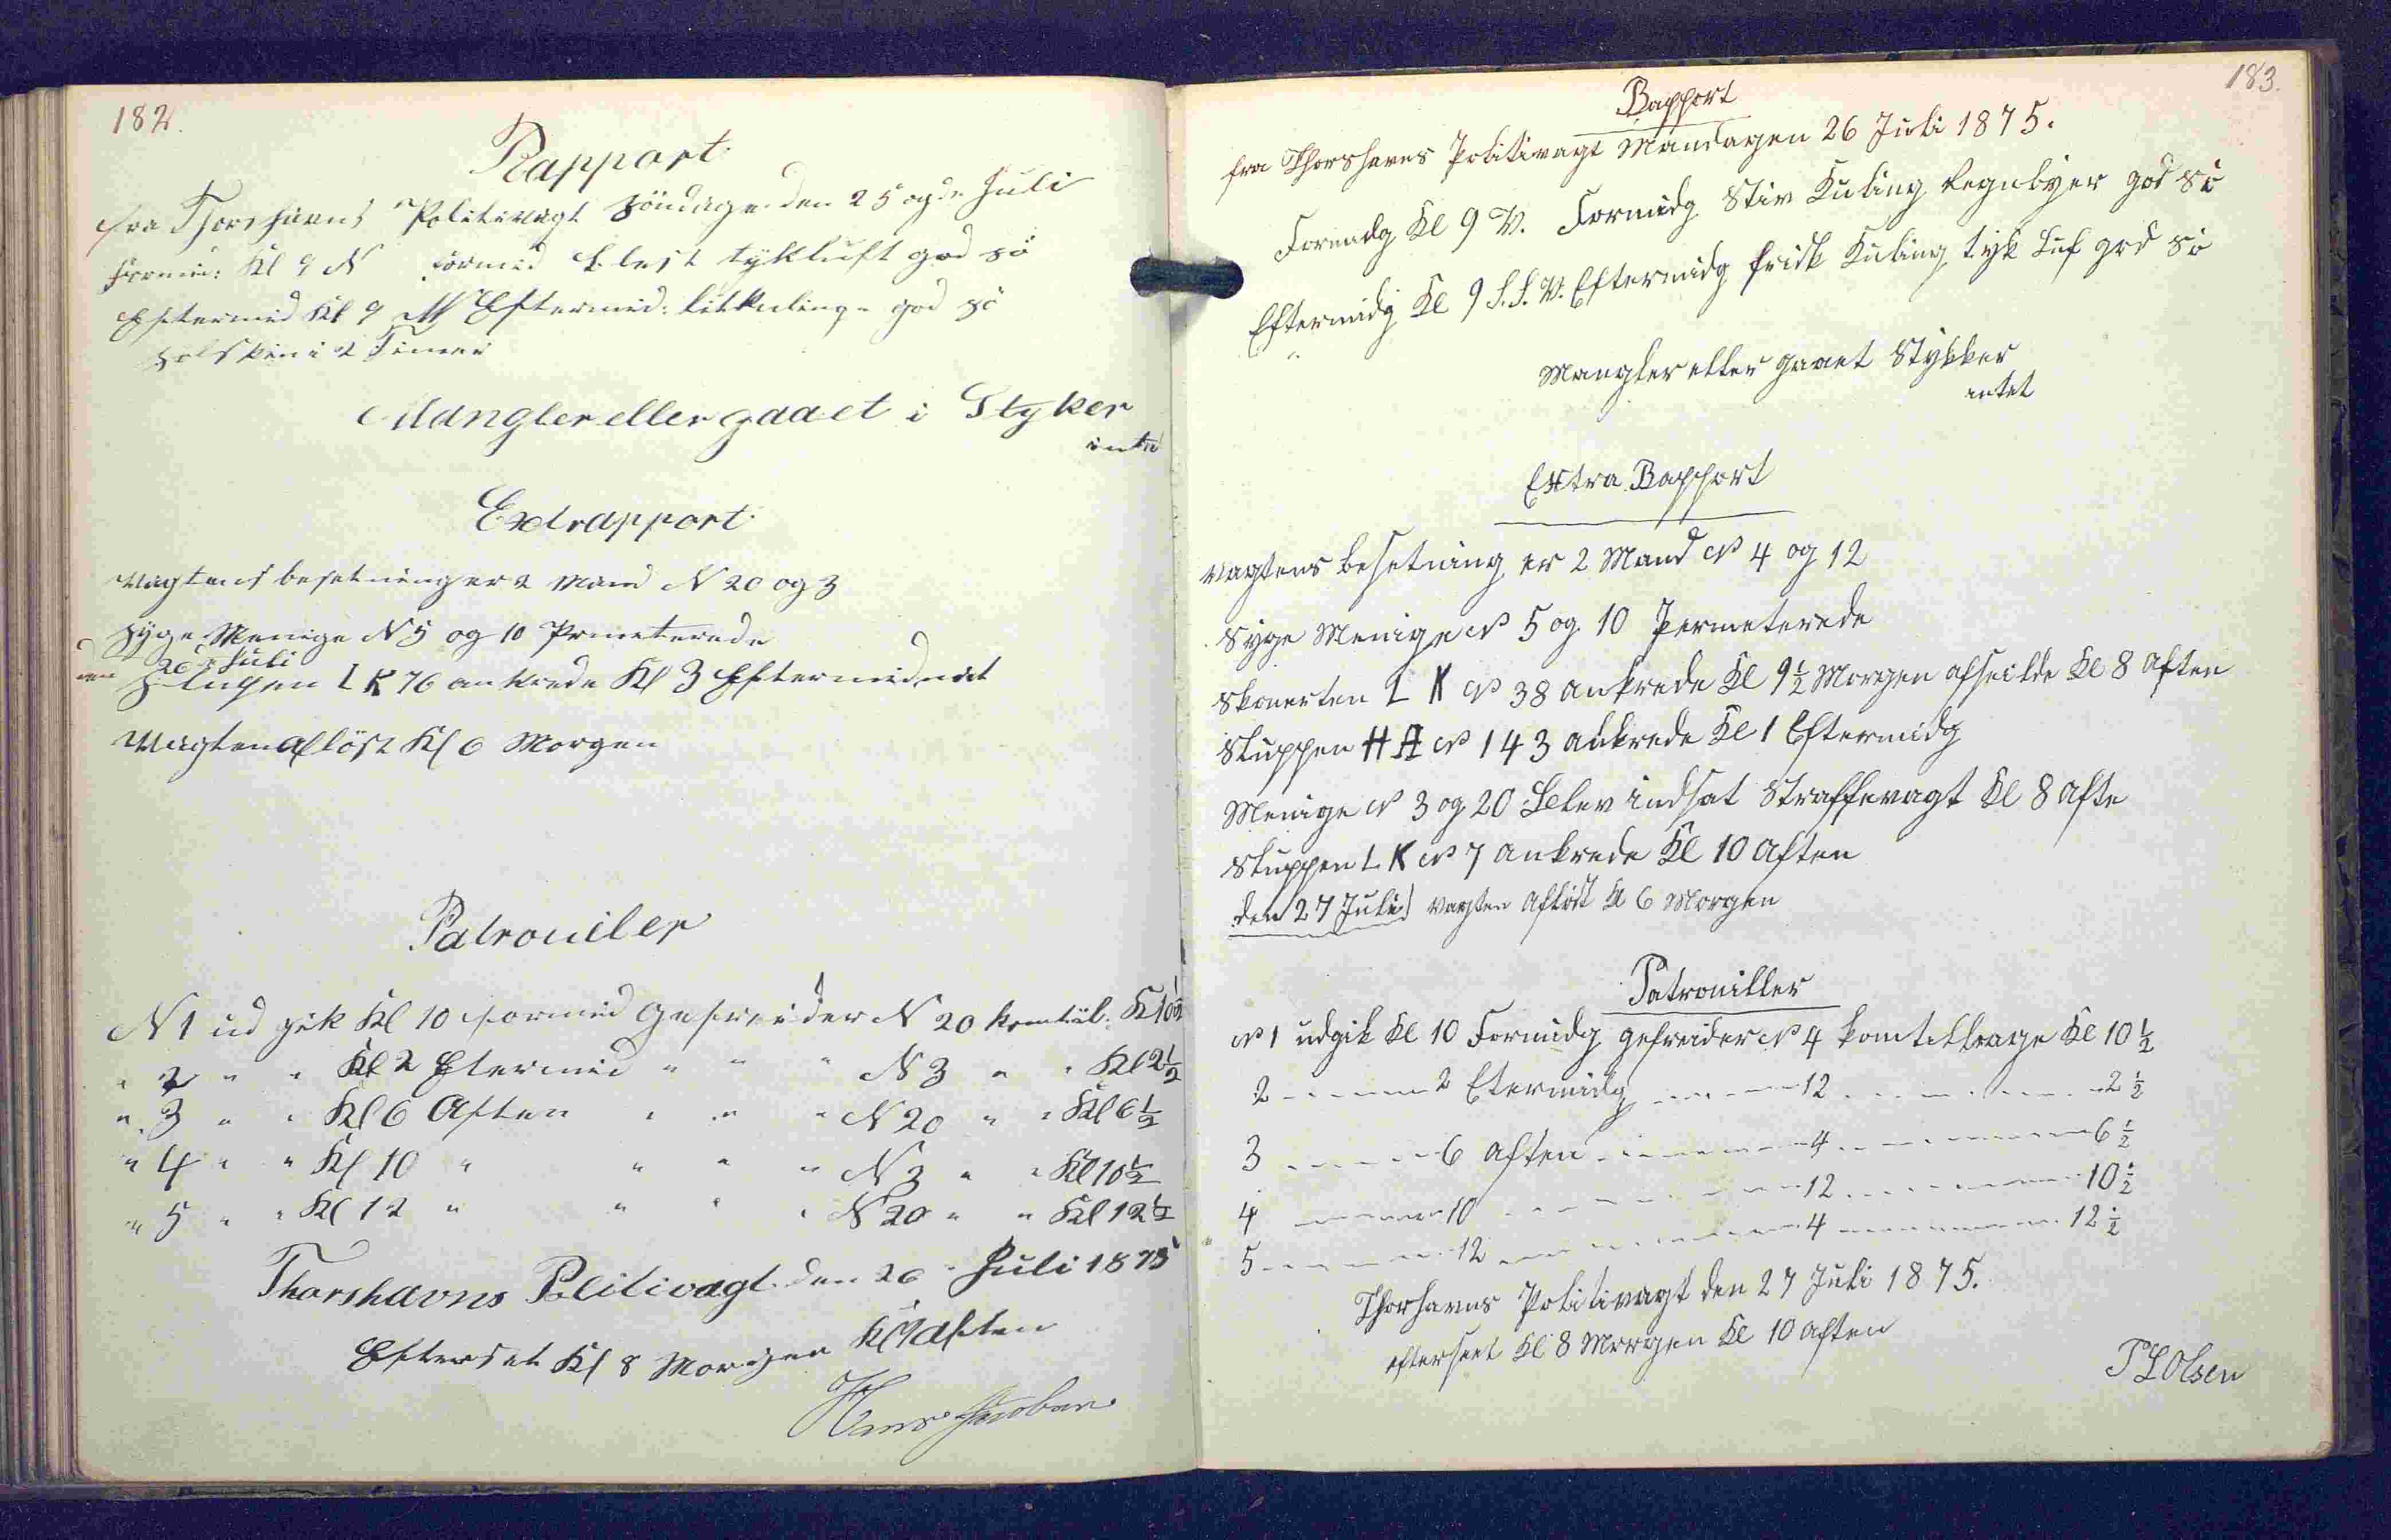 182.
Rapport
fra Thorshavns Politivagt Söndagen den 25 og de Juli
Formid: Kl 9 N Formid blest tykluft god sö
Eftermid Kl 9 N Eftermid: litkuling god sö
Solskin i 2 Timer
Mangler eller gaaet i Styker
intet
Extrapport
Vagtens besetning er 2 Mand N 20 og 3
Syge Menige N 5 og 10 Prmeterede
den 26 Juli
Slupen L K 76 ankrede Kl 3 Eftermidnat
Vagten Aflöst Kl 6 Morgen
Patrouiler
N 1 ud gik Kl 10 formid Gefreider N 20 komtil: K 10½
" 2 " " Kl 2 Etermid " " " N 3 " " Kl 2½
" 3 " " Kl 6 Aften " " " N 20 " " Kl 6½
" 4 " " Kl 10 " " " " N 3 " " Kl 10½
" 5 " " Kl 12 " " " " N 20 " " Kl 12½
Thorshavns Politivagt den 26 Juli 1875
Efterset Kl 8 Morgen Kl 9 Aften
Hans Jacobsen
183.
Rapport
fra Thorshavns Politivagt Mandagen 26 Juli 1875.
Formidg Kl 9 V. Formidg Stiv Kuling Regnbyer god sö
Eftermidg Kl 9 S.S.V. Eftermidg frisk Kuling tyk Luf god sö
Mangler eller gaaet Stykker
intet
Extra Rapport
Vagtens besetning er 2 Mand No 4 og 12
Syge Menige No 5 og 10 Permeterede
Skonerten L K No 38 ankrede Kl 9½ Morgen afseilde Kl 8 Aften
Sluppen H A No 143 ankrede Kl 1 Eftermidg
Menige No 3 og 20 Blev indsat Straffevagt Kl 8 Afte
Sluppen L K No 7 ankrede Kl 10 Aften
den 27 Juli) Vagten Aflöst Kl 6 Morgen
Patrouiller
No 1 udgik Kl 10 Formidg gefreider No 4 komtilbage Kl 10½
2 - - - - - 2 Etermidg - - - - 12 - - - - - - 2½
3 - - - - - 6 Aften - - - - - 4 - - - - - - 6½
4 - - - - - 10 - - - - - - 12 - - - - - - 10½
5 - - - - - 12 - - - - - - 4 - - - - - - 12½
Thorhavns Politivagt den 27 Juli 1875.
efterseet Kl 8 Morgen Kl 10 Aften
P L Olsen